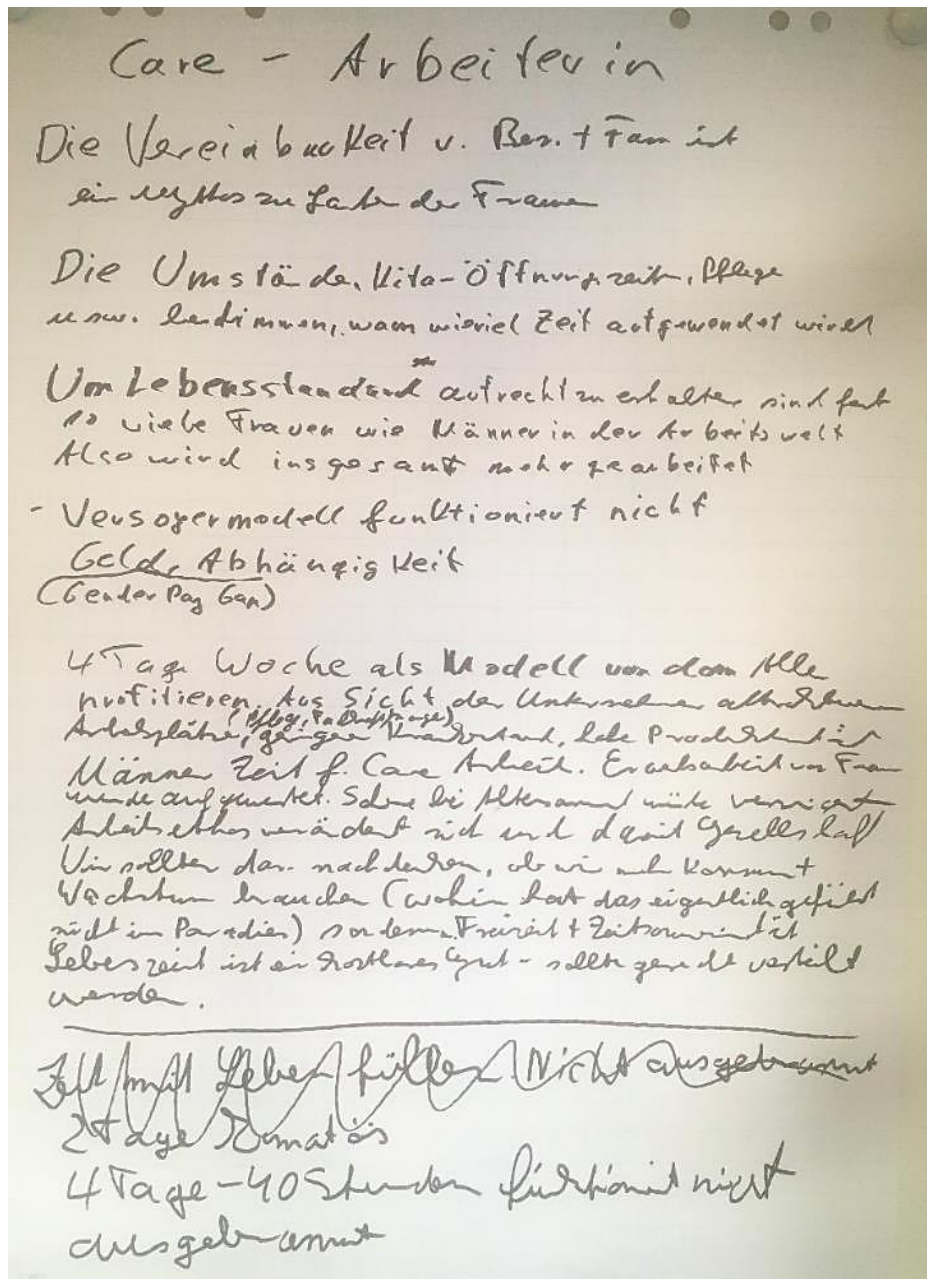 Care - Arbeiterin
Die Vereinbarkeit v. Ber. + Fam ist
ein Mythos zu Lasten der Frauen
Die Umstände, Kita-Öffnungszeiten, Pflege
usw. bestimmen, wann wieviel Zeit aufgewendet wird
Um Lebensstandard aufrecht zu erhalten sind fast
so viele Frauen wie Männer in der Arbeitswelt
Also wird insgesamt mehr gearbeitet
- Versogermodell funktioniert nicht
Geld, Abhängigkeit
(Gender Pay Gap)
4 Tage Woche als Modell von dem Alle
profitieren. Aus Sicht der Unternehmer
(Pflege,
Arbeitsplätze, Krankenstand, Produktivität
Männer Zeit f. Care Arbeit. Erwerbsarbeit von Frauen
würde aufgewertet. bei Altersarmut würde verringert
Arbeitsethos verändert sich und damit Gesellschaft
Wir sollten nachdenken, ob wir mehr Konsum +
Wachstum brauchen (wohin hat das eigentlich geführt
nicht ins Paradies) sondern Freizeit + Zeitsouveränität
Lebenszeit ist ein kostbares Gut - sollte gerecht verteilt
werden.
Zeit mit Leben füllen Nicht ausgebrannt
2 Tage
4 Tage - 40 Stunden funktioniert nicht
ausgebrannt